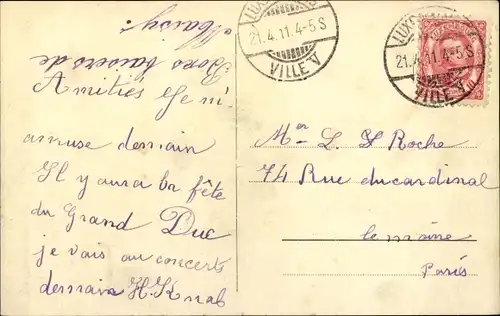 Bons baisers de
Maisy.
Amitiés Je m'
amuse demain
Il y aura la fête
du Grand Duc
je vais au concert
demain H. Knab
LUX
21.4.11.4-5S
VILLE V
LUX
21.4.11.4-5S
VILLE V
Mer L. Roche
74 Rue du cardinal
lemoine
Paris